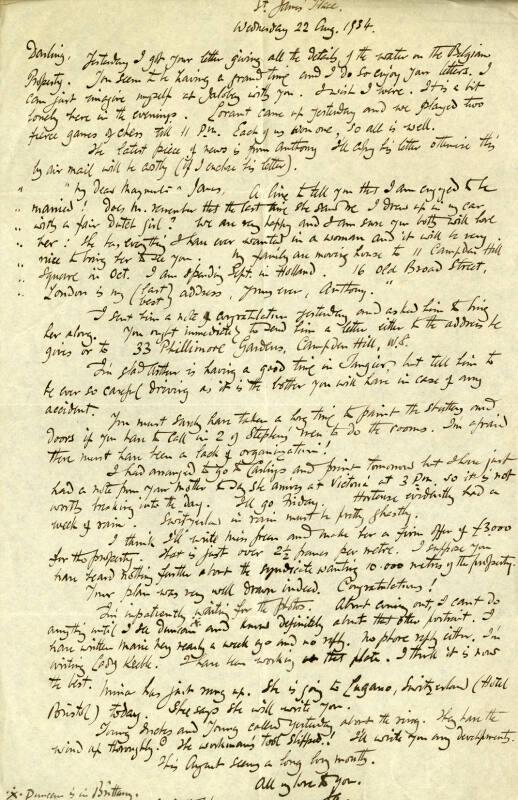 St. James Place.
Wednesday 22 Aug. 1934.
Darling, Yesterday I got your letter giving all the details of the water on the Belgian
Property. You seem to be having a grand time and I do so enjoy your letters. I
can just imagine myself at with you. I wish I were. It is a bit
lonely here in the evenings. came up yesterday and we played two
fierce games of chess till 11 P.m. Each of us won one, so all is well.
The latest piece of news is from Anthony. I'll copy his letter otherwise this
by air mail will be costly (if I enclose his letter).
" " My dear " James, A line to tell you that I am engaged to be
" married! Does M. remember that the last time she saw me I drew up in my car,
" with a fair Dutch girl? We are very happy and I am sure you both will love
" her: She has everything I have ever wanted in a woman and it will be very
" nice to bring her to see you. My family are moving house to 11 Campden Hill
" Square in Oct. I am spending Sept. in Holland. 16 Old Broad Street,
" London is my (last) (best) address, yours ever, Anthony."
I sent him a note of congratulation yesterday and asked him to bring
her along. You ought immediately to send him a letter either to the address he
gives or to 33 Phillimore Gardens, Campden Hill, W.8.
I'm glad is having a good time in Tangier but tell him to
be ever so careful driving as it is the bother you will have in case of any
accident.
You must surely have taken a long time to paint the shutters and
doors if you have to call in 2 of men to do the rooms. I'm afraid
there must have been a lack of organization!
I had arranged to go to and print tomorrow but I have just
had a note from your mother to say she arrives at Victoria at 3 P.m. so it is not
worth breaking into the day. I'll go Friday. Hortense evidently had a
week of rain. Switzerland in rain must be pretty ghastly.
I think I'll write Miss and make her a firm offer of £3.000
for the property. That is just over 2½ francs per metre. I suppose you
have heard nothing further about the syndicate wanting 10.000 metres of the property.
Your plan was very well drawn indeed. Congratulations!
I'm impatiently waiting for the photos. About coming out, I can't do
anything until I see Duncan* and know definitely about that other portrait. I
have written nearly a week ago and no reply. No phone reply either. I'm
writing Lady Keeble. Have been working on that plate. I think it is now
the best.
has just rung up. She is going to Lugano, Switzerland (Hotel
Bristol) today. She says she will write you.
Young and Young called yesterday about the ring. They have the
wind up thoroughly. The workman's tool slipped! I'll write you any developments.
This August seems a long long month.
All my love to you.
*. Duncan is in Brittany.